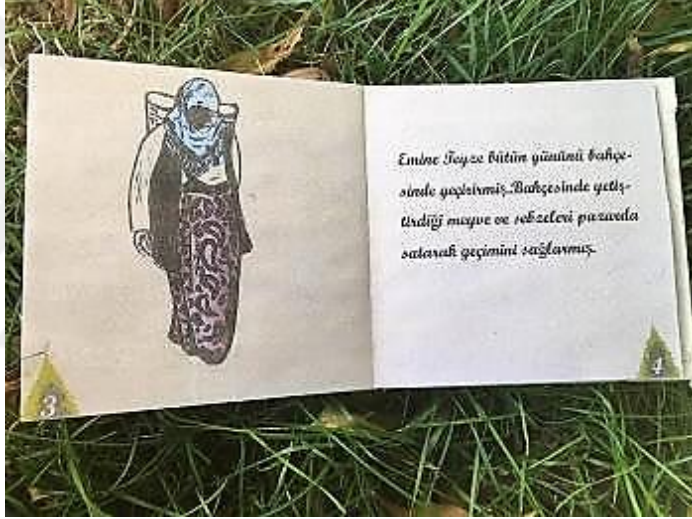 Emine Teyze bütün gününü bahçe-
sinde geçirirmiş.Bahçesinde yetiş-
tirdiği meyve ve sebzeleri pazarda
satarak geçimini sağlarmış.
3
4